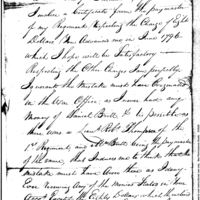 I enclose a Certificate from the paymaster
of my Regiment Respecting the Charge of Eight
Dollars Advanced me in June 1796
which I hope will be Satisfactory
Respecting the Other Charges I am perfectly
Ignorant the Mistake must have Originated
in the War Office, as I never had any
Money of Daniel Britt to be possible as
there was a Lieut. Robt. Thompson of the
1st Regiment, and Mr. Britt being the paymaster
of the same, that Induces me to think that the
mistake must have been there as I deny
Ever Receiving Any of the Monies Stated in your